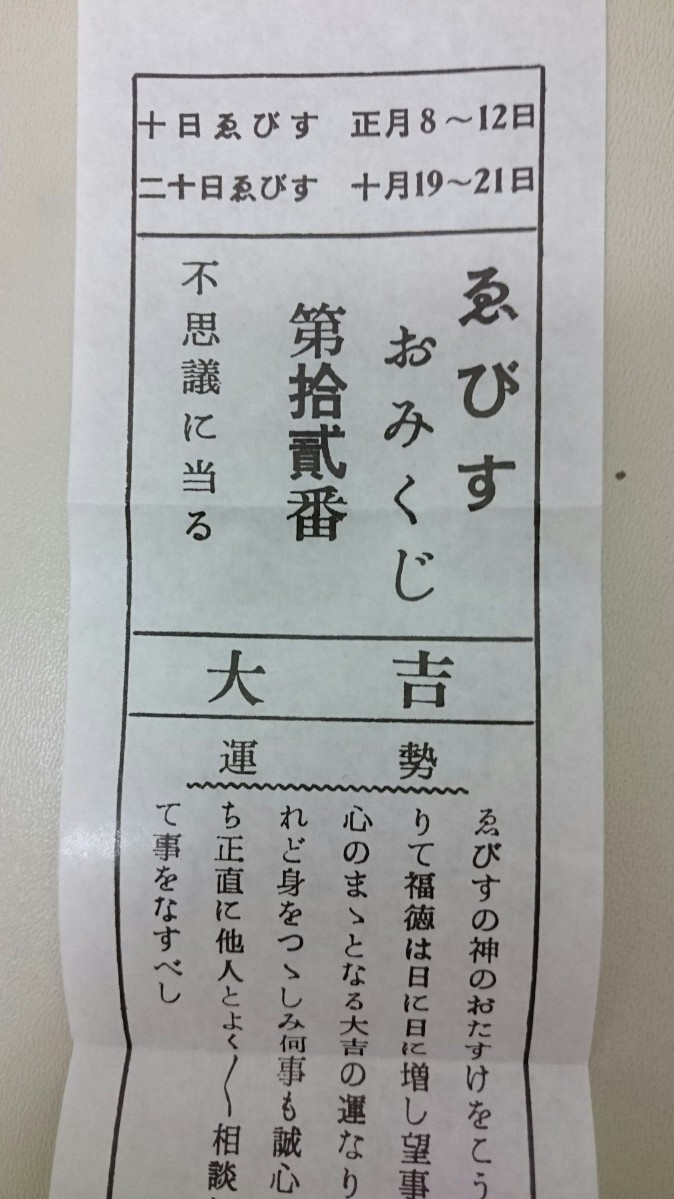 十日ゑびす　正月8〜12日
二十日ゑびす　十月19〜21日
ゑびす
おみくじ
第拾貳番
不思議に当る
大吉
運勢
ゑびすの神のおたすけをこう
りて福徳は日に日に増し望事
心のまゝとなる大吉の運なり
れど身をつゝしみ何事も誠心
ち正直に他人とよく〳〵相談
て事をなすべし